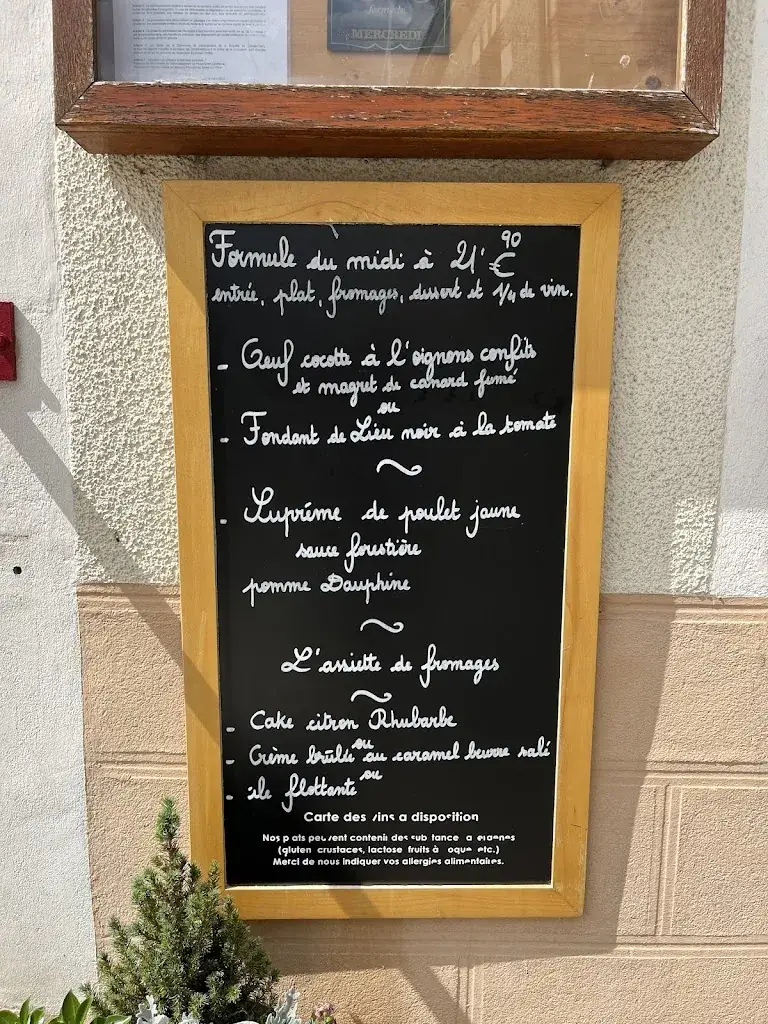 MERCREDI
Formule du midi à 21'€90
entrée, plat, fromages, dessert et 1/4 de vin.
- Oeuf cocotte à l'oignons confits
et magret de canard fumé
ou
- Fondant de Lieu noir à la tomate
~
- Suprême de poulet jaune
sauce forestière
pomme Dauphine
~
L'assiette de fromages
~
- Cake citron Rhubarbe
ou
- Crème brûlée au caramel beurre salé
ou
- île flottante
Carte des vins a disposition
Nos plats peuvent contenir des substance a
(gluten crustaces, lactose fruits à coque etc.)
Merci de nous indiquer vos allergies alimentaires.